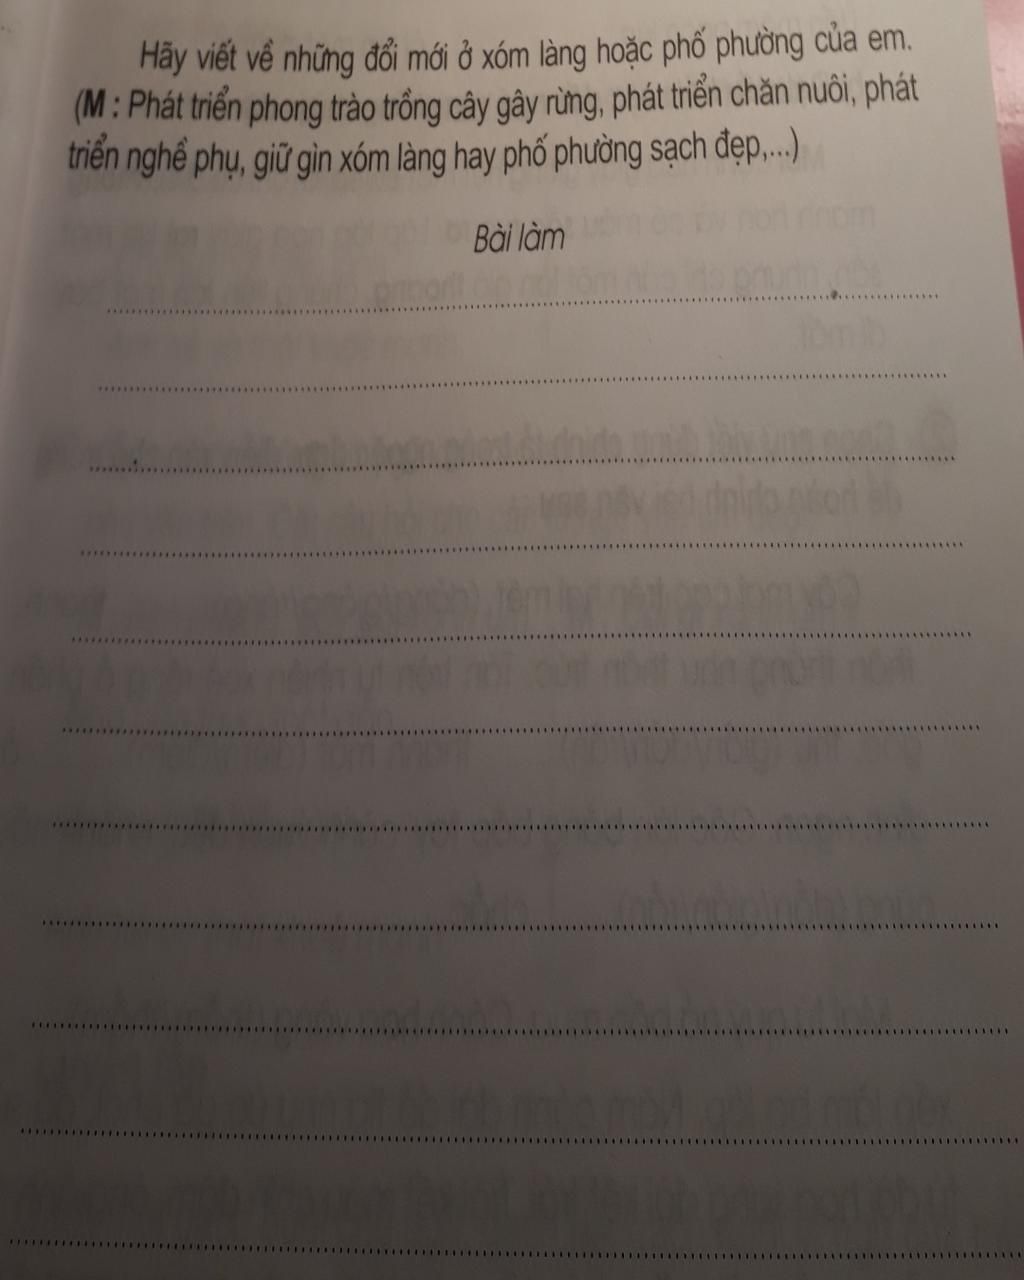 Hãy viết về những đổi mới ở xóm làng hoặc phố phường của em.
(M : Phát triển phong trào trồng cây gây rừng, phát triển chăn nuôi, phát
triển nghề phụ, giữ gìn xóm làng hay phố phường sạch đẹp,...)
Bài làm